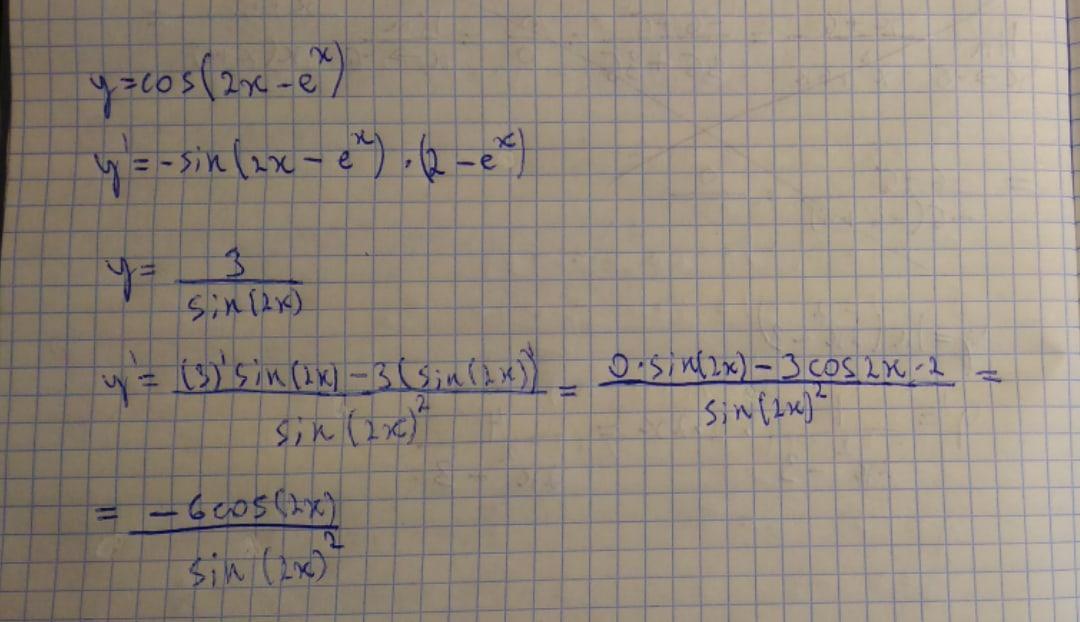 y=cos(2x-e^x)
y'=-sin(2x-e^x)·(2-e^x)
y= 3/sin(2x)
y'= ((3)'sin(2x)-3(sin(2x))')/sin(2x)^2 = (0·sin(2x)-3cos2x·2)/sin(2x)^2 =
= -6cos(2x)/sin(2x)^2